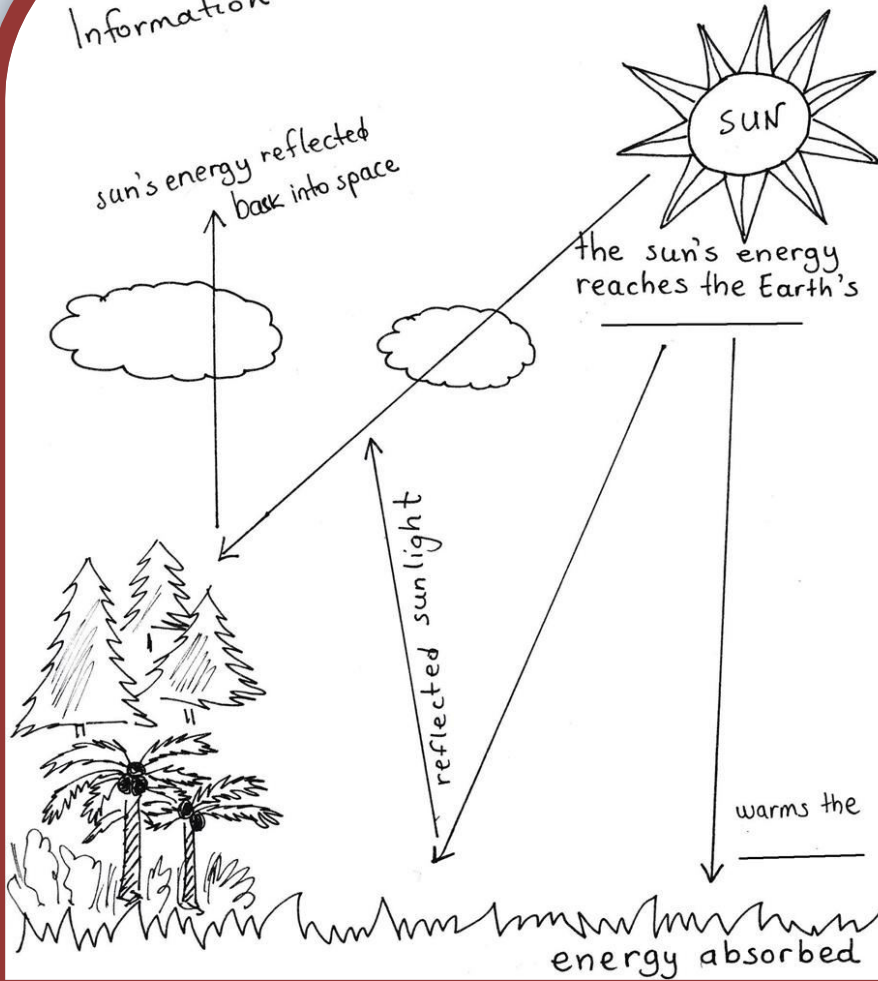 Information
sun's energy reflected
back into space
SUN
the sun's energy
reaches the Earth's
reflected sunlight
warms the
energy absorbed